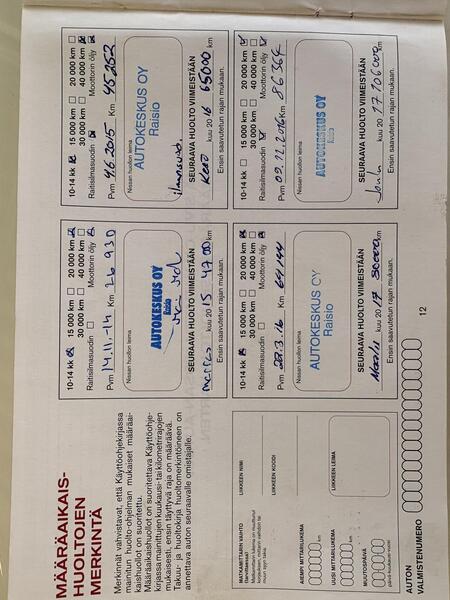 MÄÄRÄAIKAIS-
HUOLTOJEN
MERKINTÄ
Merkinnät vahvistavat, että Käyttöohjekirjassa
mainitun huolto-ohjelman mukaiset määräai-
kaishuollot on suoritettu.
Määräaikaishuollot on suoritettava Käyttöohje-
kirjassa mainittujen kuukausi- tai kilometrirajojen
mukaisesti, ensin täyttyvä raja on määräävä.
Takuu- ja huoltokirja huoltomerkintöineen on
annettava auton seuraavalle omistajalle.
MATKAMITTARIN VAIHTO
(tarvittaessa)
LIIKKEEN NIMI
LIIKKEEN KOODI
AIEMPI MITTARILUKEMA
km
UUSI MITTARILUKEMA
km
MUUTOSPÄIVÄ
päivä-kuukausi-vuosi
LIIKKEEN LEIMA
AUTON
VALMISTENUMERO
10-14 kk 15 000 km 20 000 km
30 000 km 40 000 km
Raitisilmasuodin Moottorin öljy
Pvm 14.11.-14 Km 26 930
Nissan huollon leima
AUTOKESKUS OY
Raisio
SEURAAVA HUOLTO VIIMEISTÄÄN
kuu 20 15 km
Ensin saavutetun rajan mukaan.
10-14 kk 15 000 km 20 000 km
30 000 km 40 000 km
Raitisilmasuodin Moottorin öljy
Pvm 4.6.2015 Km 45252
Nissan huollon leima
AUTOKESKUS OY
Raisio
SEURAAVA HUOLTO VIIMEISTÄÄN
kuu 20 16 65000 km
Ensin saavutetun rajan mukaan.
10-14 kk 15 000 km 20 000 km
30 000 km 40 000 km
Raitisilmasuodin Moottorin öljy
Pvm 28.3.16 Km 64144
Nissan huollon leima
AUTOKESKUS OY
Raisio
SEURAAVA HUOLTO VIIMEISTÄÄN
kuu 20 17 km
Ensin saavutetun rajan mukaan.
10-14 kk 15 000 km 20 000 km
30 000 km 40 000 km
Raitisilmasuodin Moottorin öljy
Pvm 02.12.2016 Km 86364
Nissan huollon leima
AUTOKESKUS OY
Raisio
SEURAAVA HUOLTO VIIMEISTÄÄN
Joulu kuu 20 17 106000 km
Ensin saavutetun rajan mukaan.
12